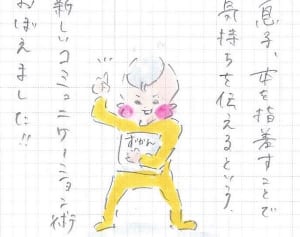 息子、本を指差すことで
気持ちを伝えるという、
新しいコミュニケーション術
おぼえました!!
ずかん